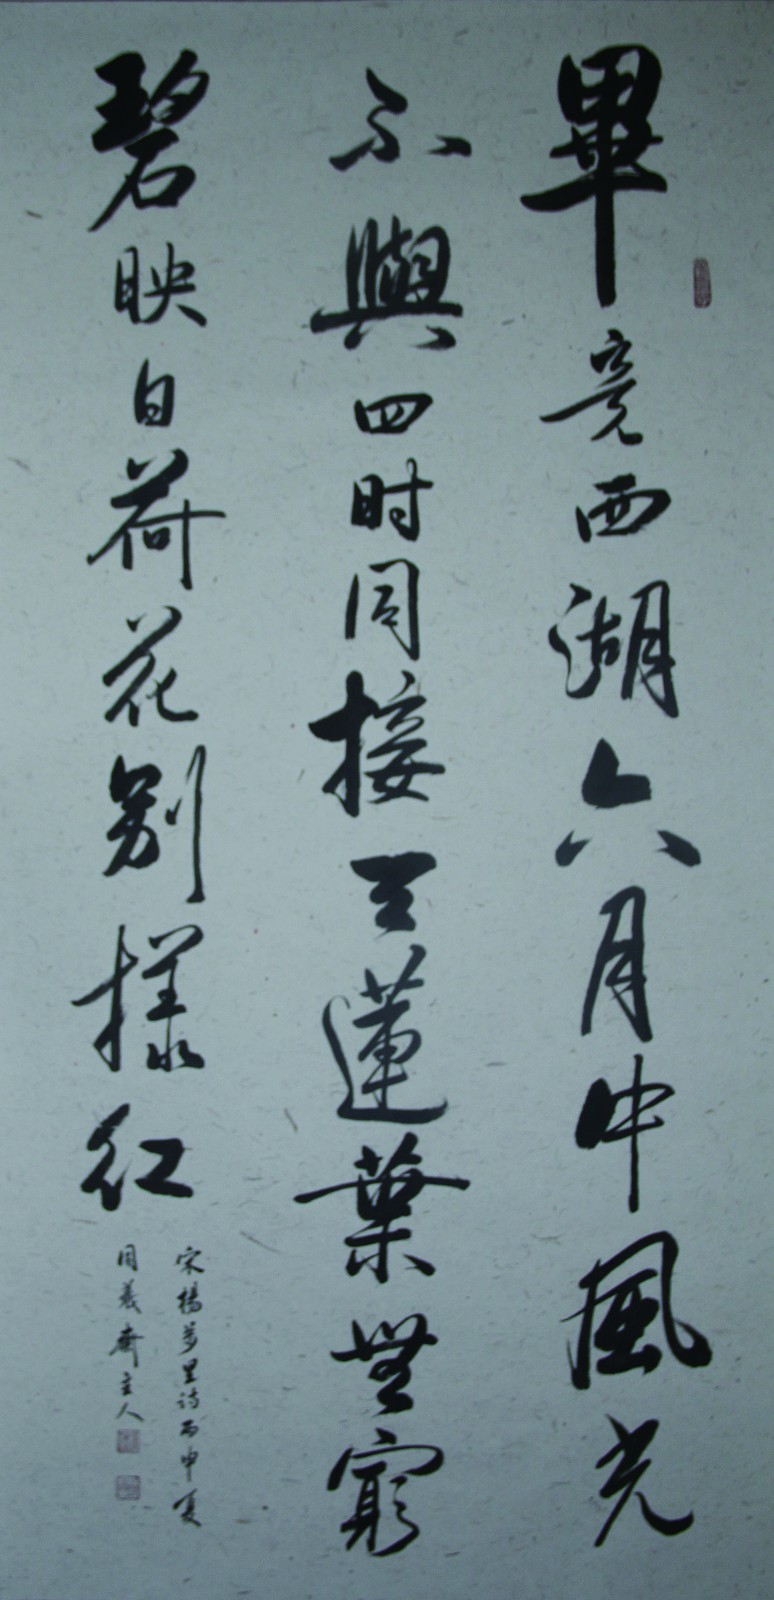 畢竟西湖六月中風光
不與四时同接天蓮葉無窮
碧映日荷花别樣紅
宋楊萬里诗丙申夏
同羲齋主人